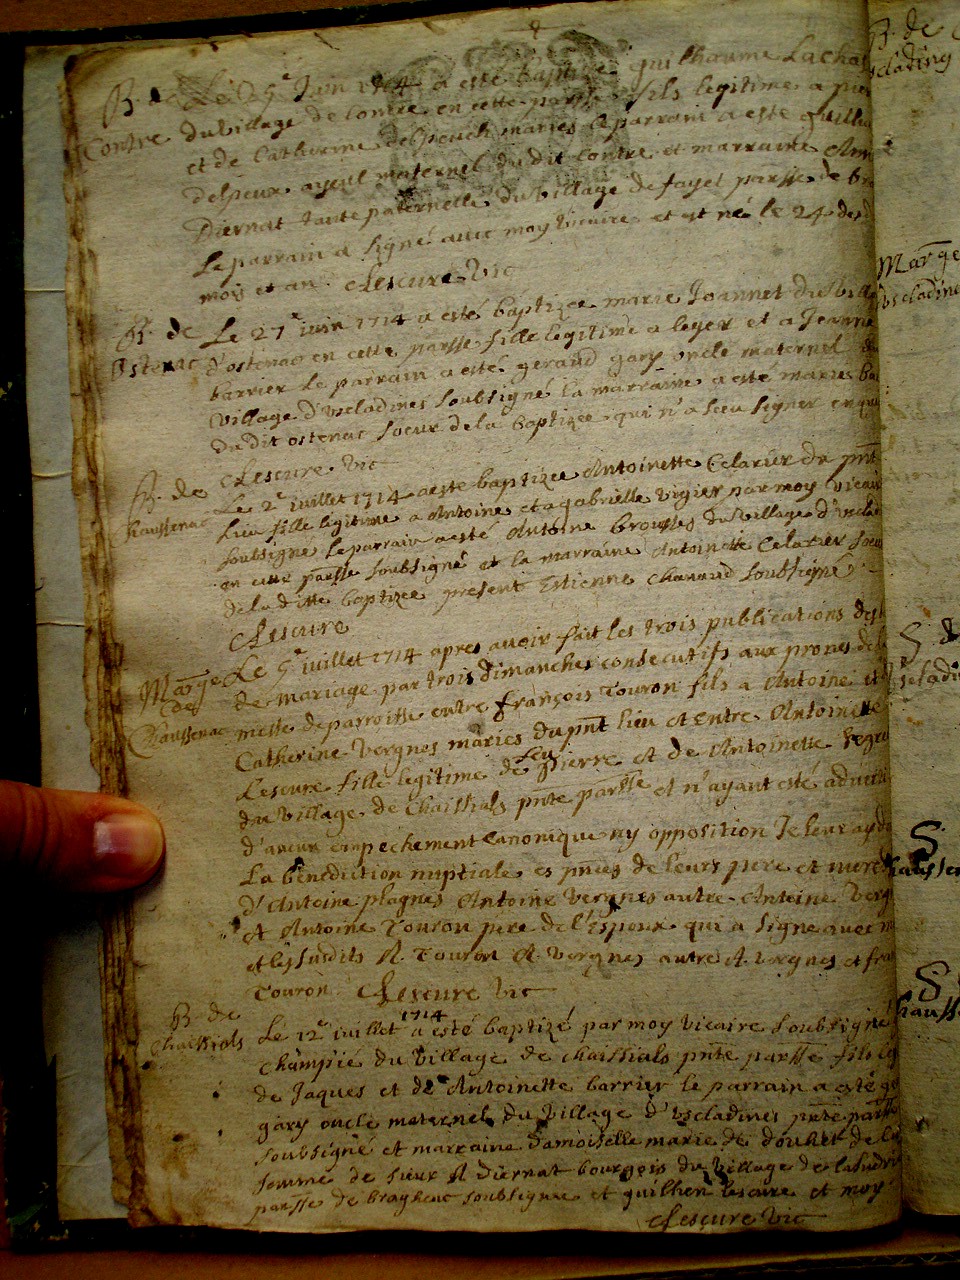 B. de Le 25e Juin 1714 a esté baptizé guilhaume Lacha
Contre du village de Contre en cette parsse fils legitime a pier
et de Catherine delpeuch maries le parrain a este guilha
delpeux ayeul maternel du dit Contre et marraine Anne
Diernat tante paternelle du village de fayet parsse de bra
Le parrain a signé avec moy vicaire et est né le 24 des d
mois et an. CLescure Vic
B. de Le 27e iuin 1714 a esté baptizee marie Joannet du ville
Ostenac d'ostenac en cette parsse fille legitime a leger et a Jeanne
barrier Le parrain a esté geraud gary oncle maternel du
village d'Uscladines soubsigné la marraine a esté marie ba
du dit ostenac soeur de la baptizee qui n'a sceu signer enquise
CLescure Vic
B. de Le 2e iuillet 1714 a este baptizee Antoinette Celarier du pnt
Chaussenac lieu fille legitime a Antoine et a gabrielle vigier par moy vicaire
soubsigné le parrain a esté Antoine brousses du village d'uscla
en cette parsse soubsigné et la marraine Antoinette Celarier soeur
de la ditte baptizee present Estienne Chanud soubsigné
CLescure
Marge Le 5e iuillet 1714 apres avoir fait les trois publications des b
de de mariage par trois dimanches consecutifs aux prones de la
Chaussenac messe de parroisse entre françois Touron fils a Antoine et
Catherine Vergnes maries du pnt lieu et Entre Antoinette
Lescure fille legitime de feu pierre et de Antoinette
du village de Chaissials pnte parsse et n'ayant esté adverti
d'aucun empechement Canonique ny opposition Je leur ay do
La benediction nuptiale es pnces de leurs pere et mere
d'Antoine plagnes Antoine Vergnes autre Antoine Verg
et Antoine Touron pere de l'Espoux qui a signe avec m
et les susdits A. Touron A. Vergnes autre A. vergnes et fra
Touron. CLescure Vic
B. de
Chaissials Le 12e iuillet 1714 a esté baptizé par moy vicaire soubsigné
Champié du village de Chaissials pnte parsse fils leg
de Jaques et de Antoinette barrier le parrain a esté ge
gary oncle maternel du village d'Uscladines pnte parsse
soubsigné et marraine damoiselle marie de douhet de la
femme de sieur A diernat bourgois du village de
parsse de brageac soubsignae et guilhen lescure et moy
CLescure Vic
B. de
Marge
uscladine
S. de
uscladi
S.
haussen
S
hausse